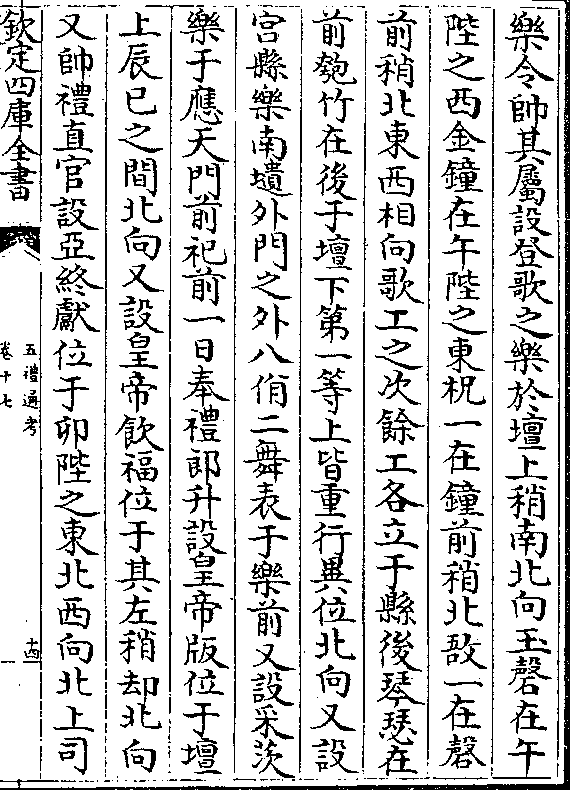 樂令帥其屬設登歌之樂於壇上稍南北向玉磬在午
陛之西金鐘在午陛之東柷一在鐘前稍北敔一在磬
前稍北東西相向歌工之次餘工各立于縣後琴瑟在
前匏竹在後于壇下第一等上皆重行異位北向又設
宮縣樂南壝外門之外八佾二舞表于樂前又設采茨
樂于應天門前祀前一日奉禮郎升設皇帝版位于壇
上辰巳之間北向又設皇帝飲福位于其左稍却北向
又帥禮直官設亞終獻位于卯陛之東北西向北上司
欽定四庫全書
五禮通考
卷十七
十四